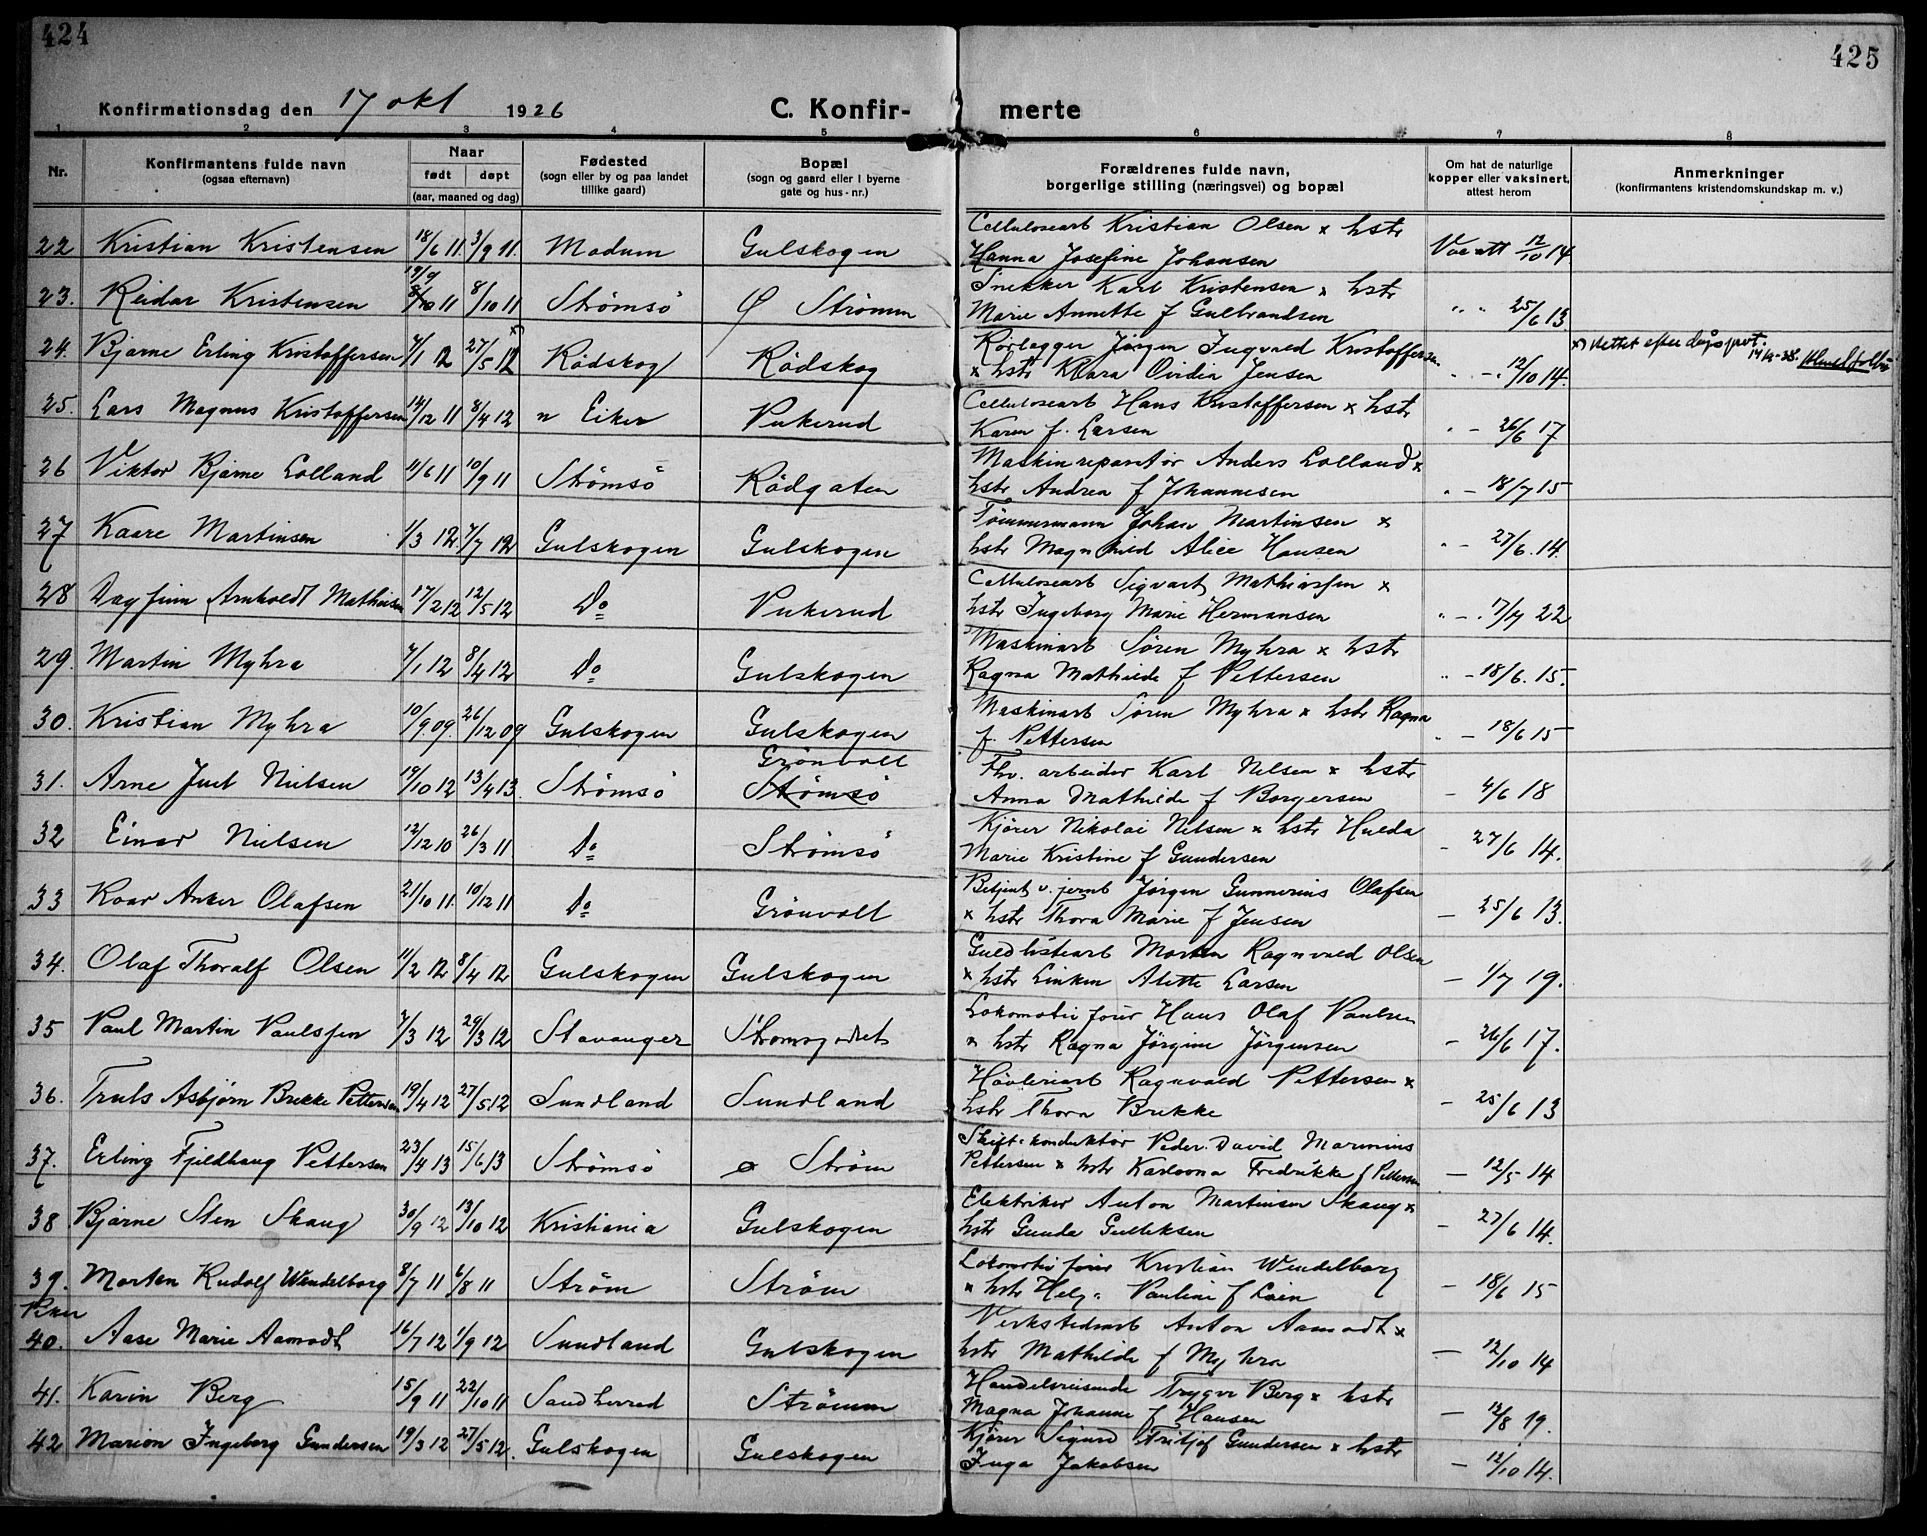 424
425
Konfirmationsdag den 17 okt 1926
C. Konfir- merte
1 2 3 4 5 6 7 8
Nr.
Konfirmantens fulde navn
(ogsaa efternavn)
Naar
født døpt
(aar, maaned og dag)
Fødested
(sogn eller by og paa landet
tillike gaard)
Bopæl
(sogn og gaard eller i byerne
gate og hus-nr.)
Forældrenes fulde navn,
borgerlige stilling (næringsvei) og bopæl
Om hat de naturlige
kopper eller vaksinert,
attest herom
Anmerkninger
(konfirmantens kristendomskundskap m. v.)
22 Kristian Kristensen 18/6 11. 3/9 11. Modum Gulskogen Celluloseart Kristian Olsen x hstr
Hanna Josefine Johansen Vac att 12/10 14
23. Reidar Kristensen 19/9 11 8/10 11 Strømsö Ø Strømm Snekker Karl Kristensen x hstr
Marie Annette f Gulbrandsen " " 25/6 13
24. Bjarne Erling Kristoffersen 7/1 12 27/5 12 x) Rödskog Rödskog Rörlægger Jörgen Ingvald Kristoffersen
x hstr Klara Ovidia Jensen " - " 12/10 14. x) Rettet efter dåpsprot.
25. Lars Magnus Kristoffersen 14/12 11 8/4 12 n Eiker Pukerud Celluloseart Hans Kristoffersen x hstr
Karen f. Larsen " - 26/6 17
26 Viktor Bjarne Lolland 11/6 11 10/9 11 Strömsö Rödgaten Maskinreparatør Anders Lolland x
hstr Andrea f Johannesen " - 18/7 15
27 Kaare Martinsen 1/3 12 7/7 12 Gulskogen Gulskogen Tömmermann Johan Martinsen x
hstr Magnhild Alice Hansen " - 27/6. 14.
28 Dagfinn Arnholdt Mathisen 17/2 12 12/5 12 Do Pukerud Celluloseart Sigvart Mathiassen x
hstr Ingeborg Marie Hermansen " - " 17/7 22
29. Martin Myhra 7/1 12 8/4 12 Do Gulskogen Maskinart Søren Myhra x hstr
Ragna Mathilde f Pettersen " - 18/6. 15.
30. Kristian Myhra 10/9 09. 26/12 09 Gulskogen Gulskogen Maskinart Søren Myhra x hstr Ragna
f. Pettersen " - 18/6 15
31. Arne Juel Nielsen 19/10 12 13/4 13. Strömsö Grönvolt
Strömsö Fhv. arbeider Karl Nelsen x hstr
Anna Mathilde f Borgersen - 4/6 18
32 Einar Nielsen 12/12 10 26/3 11 Do Strömsö Kjörer Nikolai Nelsen x hstr Hulda
Marie Kristine f Gundersen - 27/6 14.
33 Roar Anker Olafsen 21/10 11. 10/12 11 Do Grönvolt Betjent v. jernb Jørgen Gunnerius Olafsen
x hstr Thora Marie f Jensen - 25/6 13.
34. Olaf Thoralf Olsen 11/2 12 8/4 12 Gulskogen Gulskogen Guldlisteart Morten Ragnvald Olsen
x hstr Linken Alette Larsen - 1/7 19.
35 Paul Martin Paulssen 7/3 12 29/3 12 Stavanger Strömsgodset Lokomotivförer Hans Olaf Paulsen
x hstr Ragna Jørgine Jørgensen - 26/6 17.
36. Truls Asbjørn Brekke Pettersen 19/4 12 27/5 12 Sundland Sundland Høvleriart Ragnvald Pettersen x
hstr Thora Brekke - 25/6 13
37. Erling Fjeldhaug Pettersen 23/4 13 15/6 13 Strömsö ø Ström Skift-konduktör Peder David Marinius
Pettersen x hstr Karloona Fredrikke f Pettersen - 12/5 14
38 Bjarne Sten Skaug 30/9 12 13/10 12 Kristiania Gulskogen Elektriker Anton Martinsen Skaug x
hstr Gunda Gulliksen - 27/6 14.
39. Morten Rudolf Wendelborg 8/7 11 6/8 11 Ström Ström Lokomotivförer Kristian Wendelborg
x hstr Helga Pauline f Lien - 18/6 15
Piker
40. Aase Marie Aamodt 16/7 12 1/9 12 Sundland Gulskogen Verkstedsart Anton Aamodt x
hstr Mathilde f Myhra - 12/10 14
41. Karin Berg 15/9 11 22/10 11 Sandherred Strömm Handelsreisende Trygve Berg x hstr
Magna Johanne f Hansen - 12/8 19.
42 Marion Ingeborg Gundersen 19/3 12 27/5 12. Gulskogen Gulskogen Kjörer Sigurd Fritjof Gundersen x hstr
Inga Jakobsen - 12/10 14.